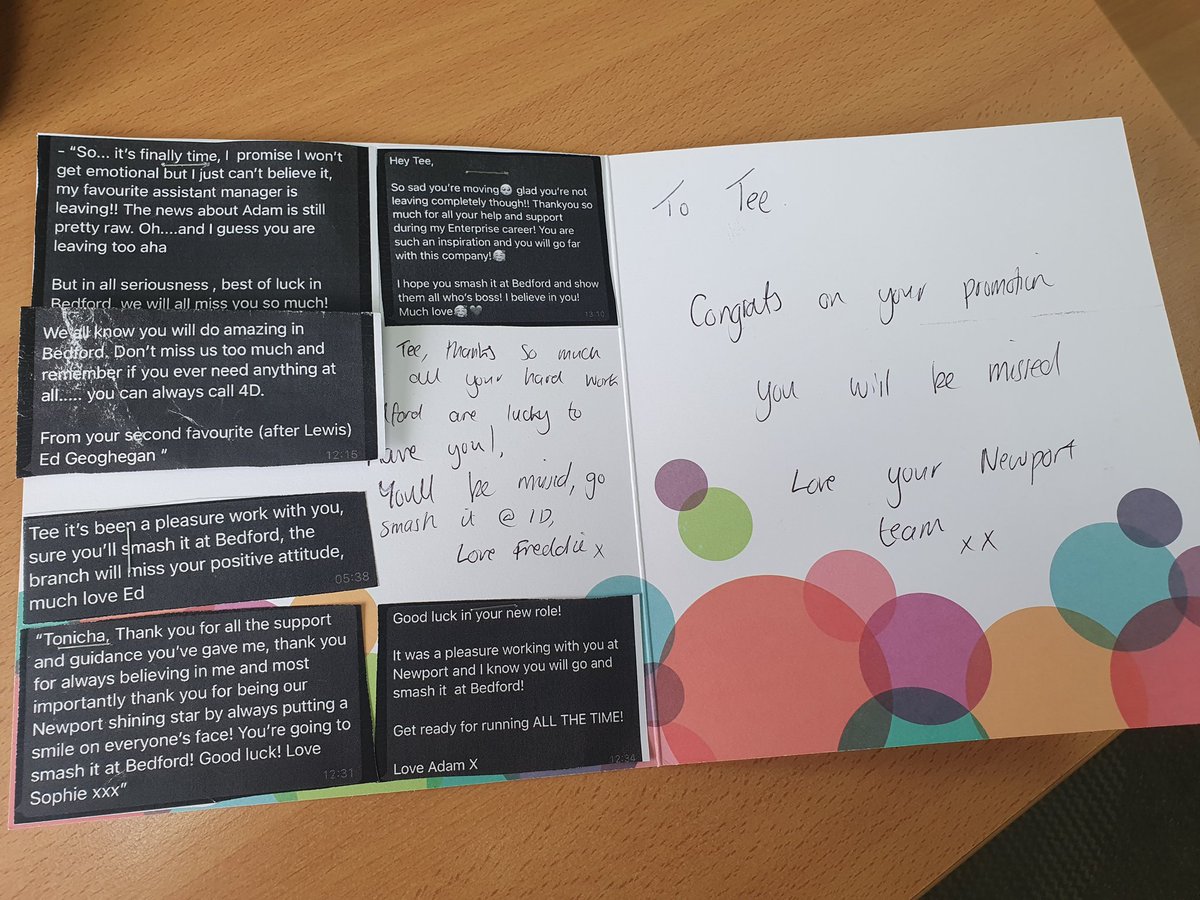 - “So... it’s finally time, I promise I won’t
get emotional but I just can’t believe it,
my favourite assistant manager is
leaving!! The news about Adam is still
pretty raw. Oh....and I guess you are
leaving too aha
But in all seriousness , best of luck in
Bedford, we will all miss you so much!
We all know you will do amazing in
Bedford. Don’t miss us too much and
remember if you ever need anything at
all..... you can always call 4D.
From your second favourite (after Lewis)
Ed Geoghegan ”
12:15
Tee it’s been a pleasure work with you,
sure you’ll smash it at Bedford, the
branch will miss your positive attitude,
much love Ed
05:38
“Tonicha, Thank you for all the support
and guidance you’ve gave me, thank you
for always believing in me and most
importantly thank you for being our
Newport shining star by always putting a
smile on everyone’s face! You’re going to
smash it at Bedford! Good luck! Love
Sophie xxx”
12:31
Hey Tee,
So sad you’re moving🥺 glad you’re not
leaving completely though!! Thankyou so
much for all your help and support
during my Enterprise career! You are
such an inspiration and you will go far
with this company!🥰
I hope you smash it at Bedford and show
them all who’s boss! I believe in you!
Much love🥰🖤
13:10
Tee, thanks so much
all your hard work
ford are lucky to
have you!,
You'll be missid, go
smash it @ 1D,
Love Freddie x
Good luck in your new role!
It was a pleasure working with you at
Newport and I know you will go and
smash it at Bedford!
Get ready for running ALL THE TIME!
Love Adam X
12:34
To Tee.
Congrats on your promotion
you will be missed
Love your Newport
team xx